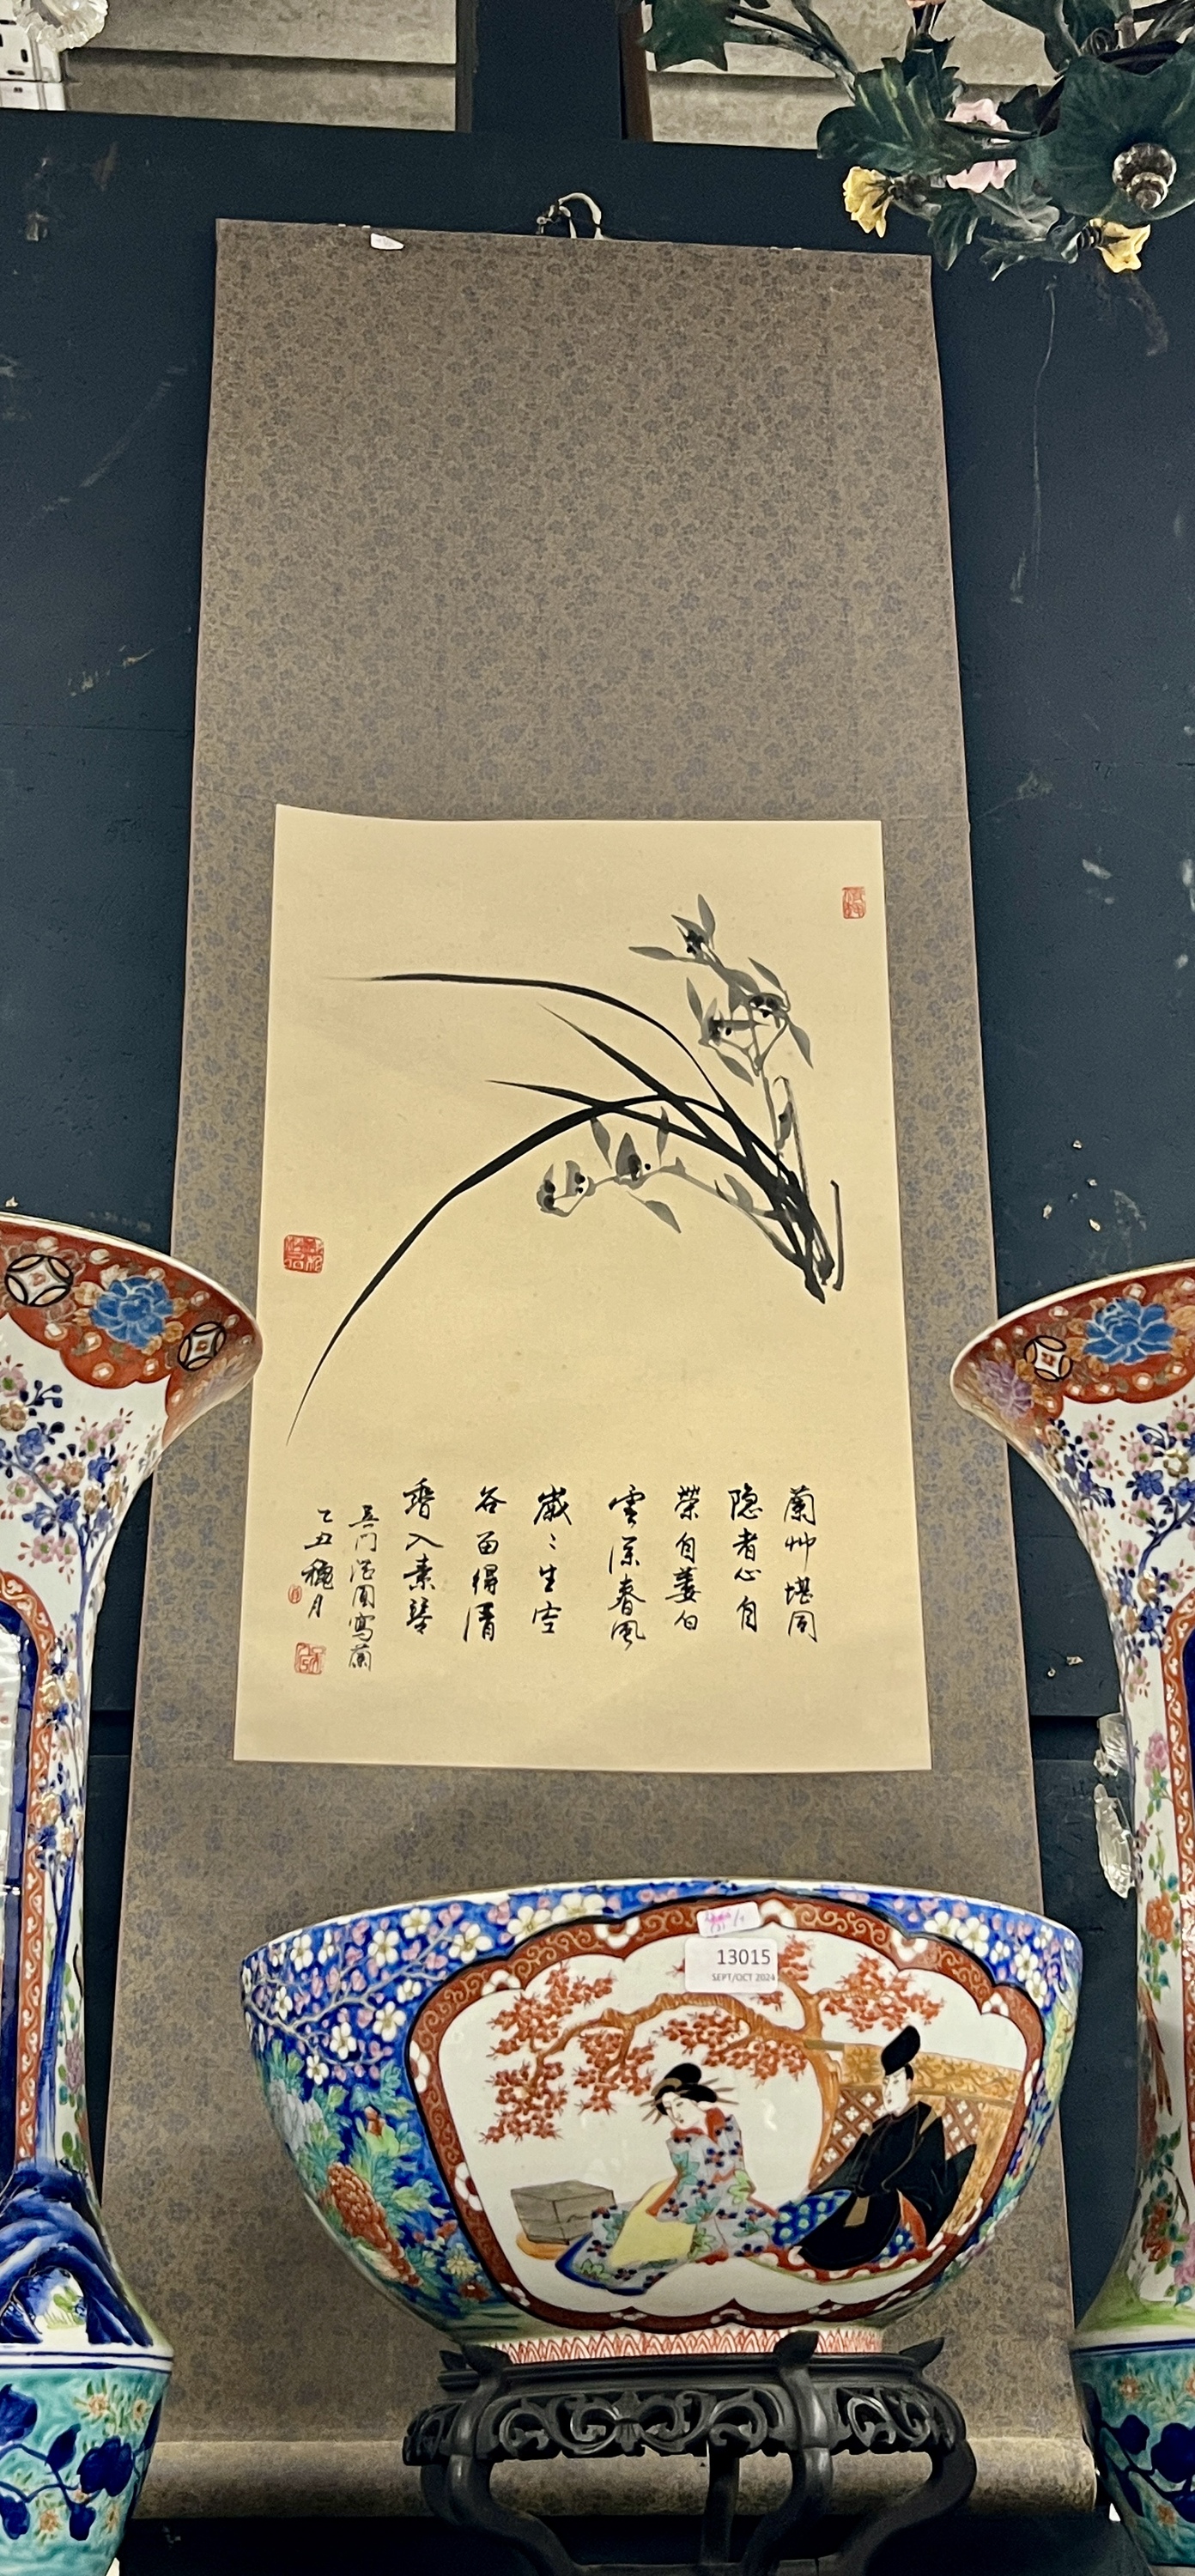 蘭艸堪同
隐者心自
榮自萎白
雲深春風
歲〻生空
谷留得清
香入素琴
吴門 圓寫蘭
乙丑穐月
13015
SEPT/OCT 2024